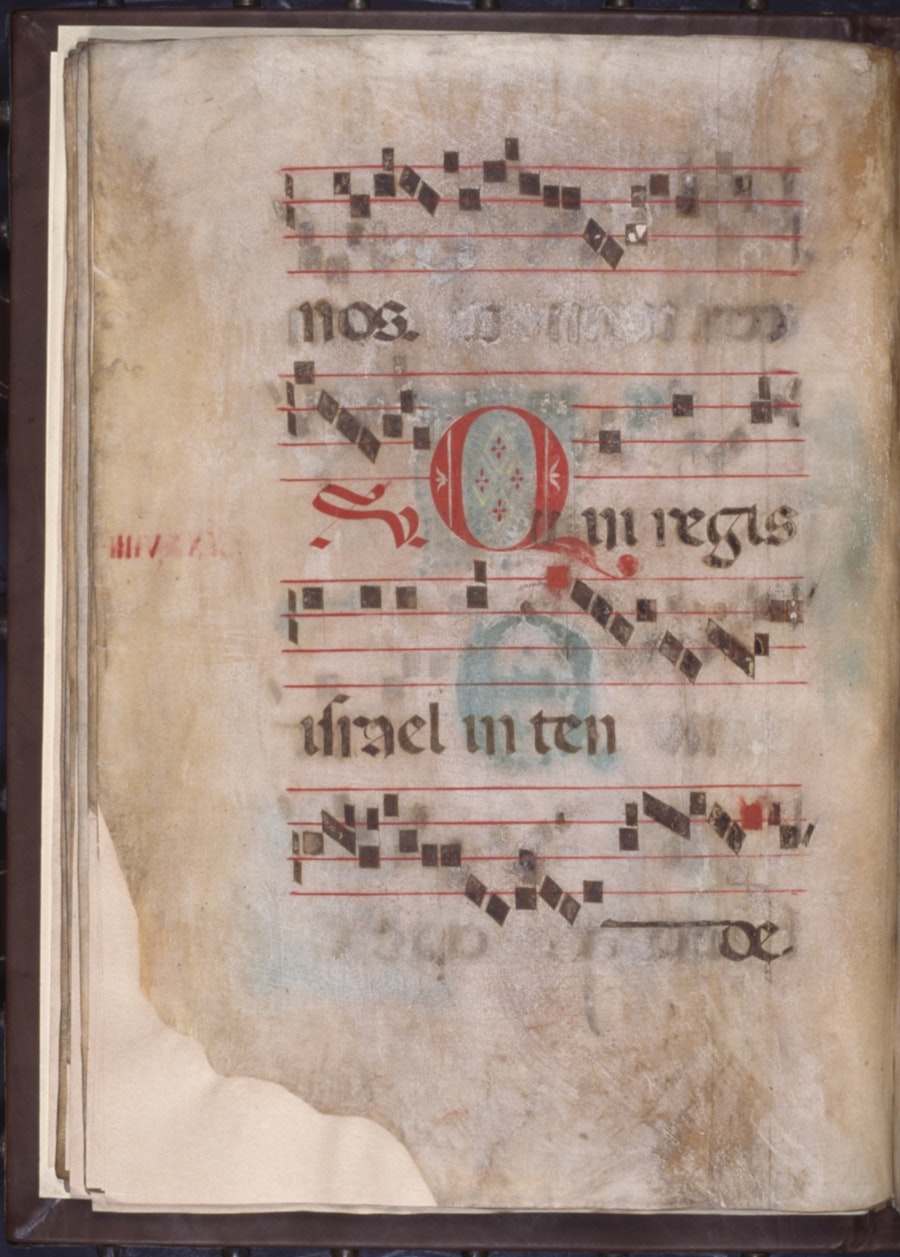 nos.
V. Qui regis
israel inten
de.